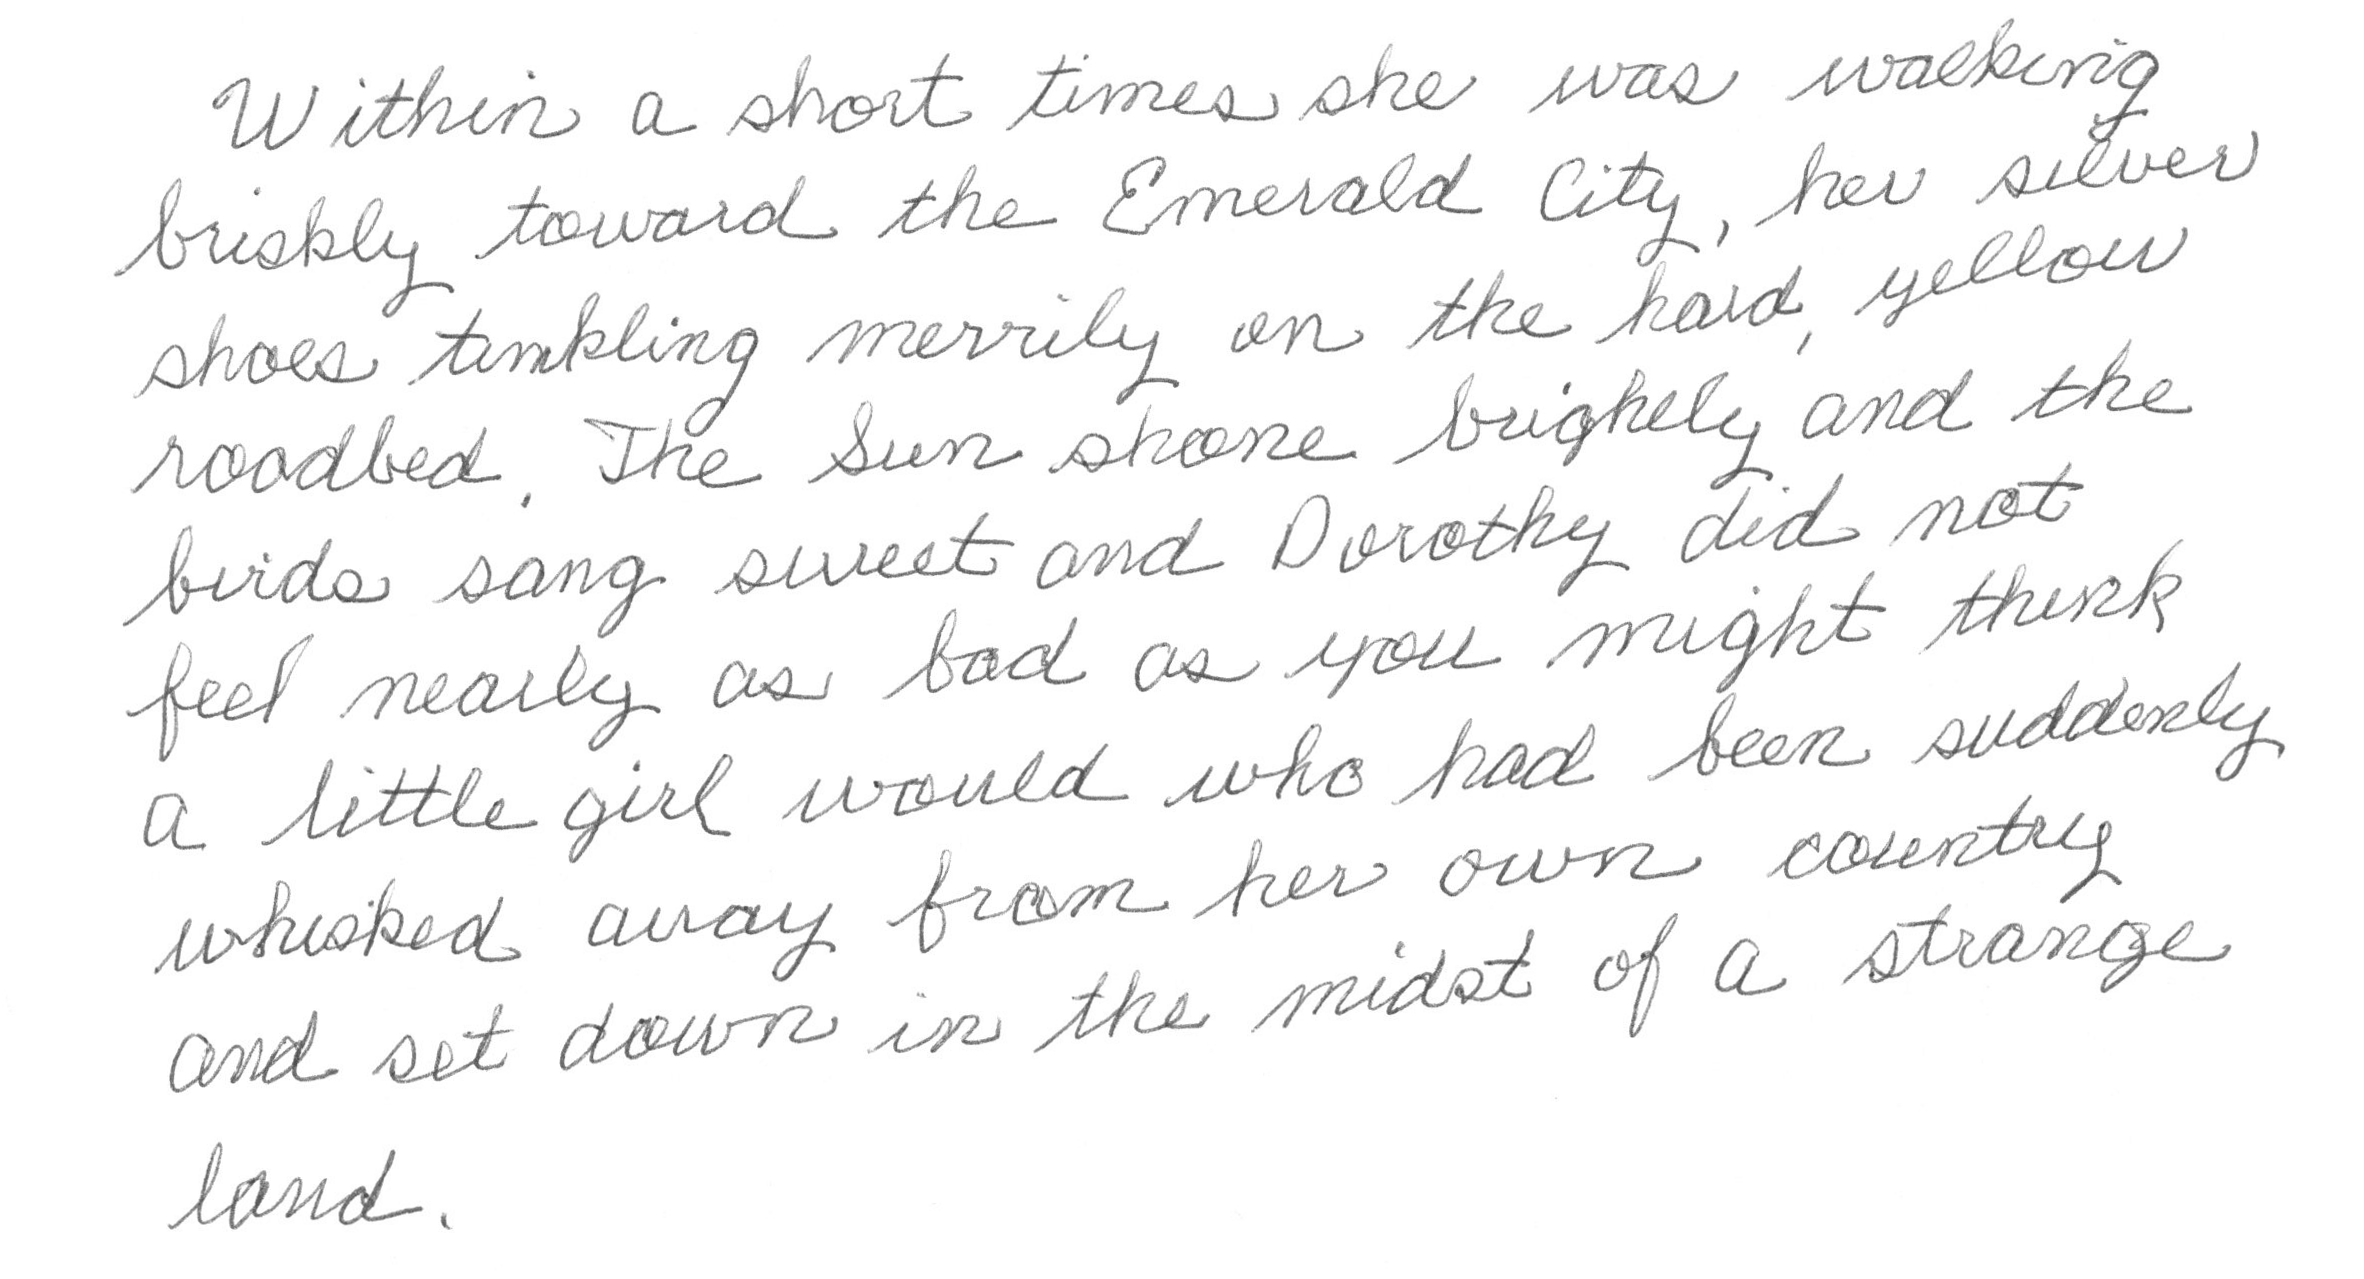 Within a short times she was walking
briskly toward the Emerald City, her silver
shoes tinkling merrily on the hard, yellow
roadbed. The Sun shone brightly and the
birds sang sweet and Dorothy did not
feel nearly as bad as you might think
a little girl would who had been suddenly
whisked away from her own country
and set down in the midst of a strange
land.